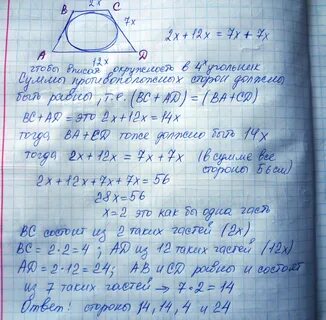 2x
B C
7x
2x + 12x = 7x + 7x
A D
12x
чтобы вписать окружность в 4х угольник
Суммы противоположных сторон должны
быть равны, т.е. (BC+AD) = (BA+CD)
BC+AD = это 2x+12x = 14x
тогда BA+CD тоже должно быть 14x
тогда 2x+12x = 7x+7x (в сумме все
стороны 56см)
2x+12x+7x+7x = 56
28x = 56
x=2 это как бы одна часть
BC состоит из 2 таких частей (2x)
BC = 2·2 = 4; AD из 12 таких частей (12x)
AD = 2·12 = 24; AB и CD равны и состоят
из 7 таких частей → 7·2 = 14
Ответ: стороны 14, 14, 4 и 24